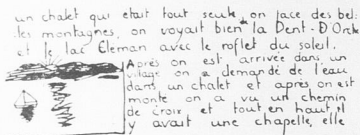 un chalet qui etait tout seule, on face des bel
les montagnes, on voyait bien la Dent-D'Orche
et le lac Eleman avec le roflet du soleil.
Après on est arrivée dans un
vilage on a demandé de l'eau
dans un chalet et après on est
monte on a vu un chemin
de croix et tout en haut il
y avait une chapelle, elle